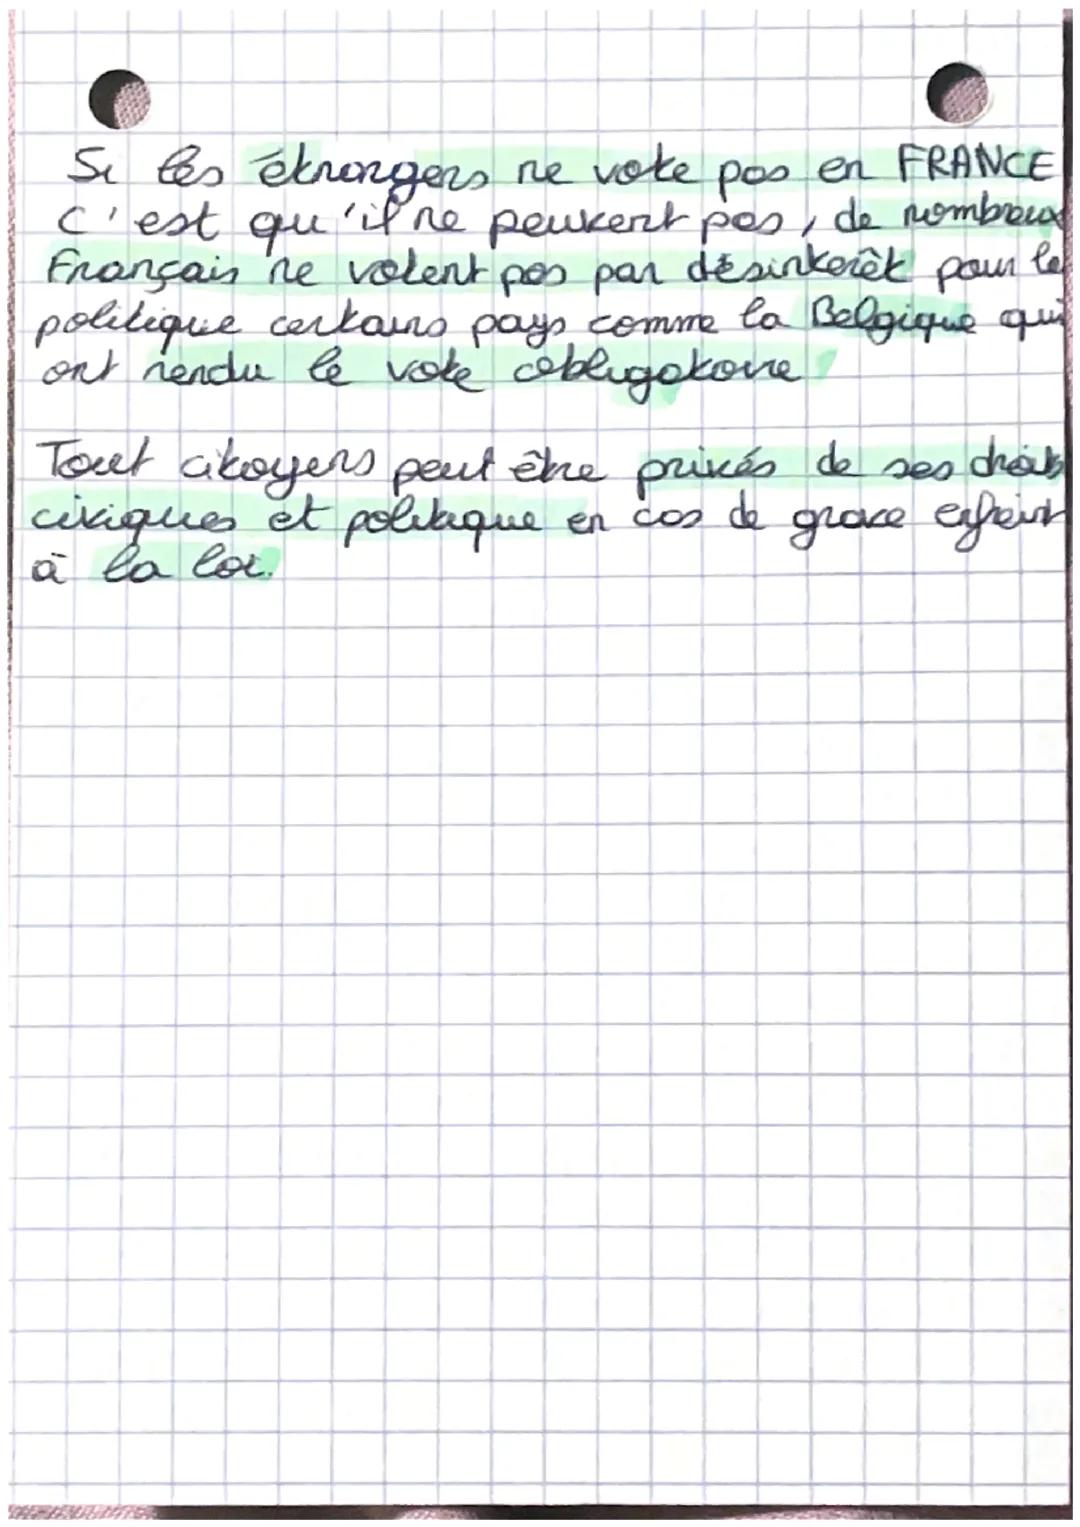 Si les étrangers ne vote pas en FRANCE
c'est qu'il ne peuvent pas, de nombreux
Français ne votent pas par désintérêt pour la
politique certains pays comme la Belgique qui
ont rendu le vote obligatoire
Tout citoyens peut être privés de ses droits
civiques et politique en cas de grave enfreint
à la loi.